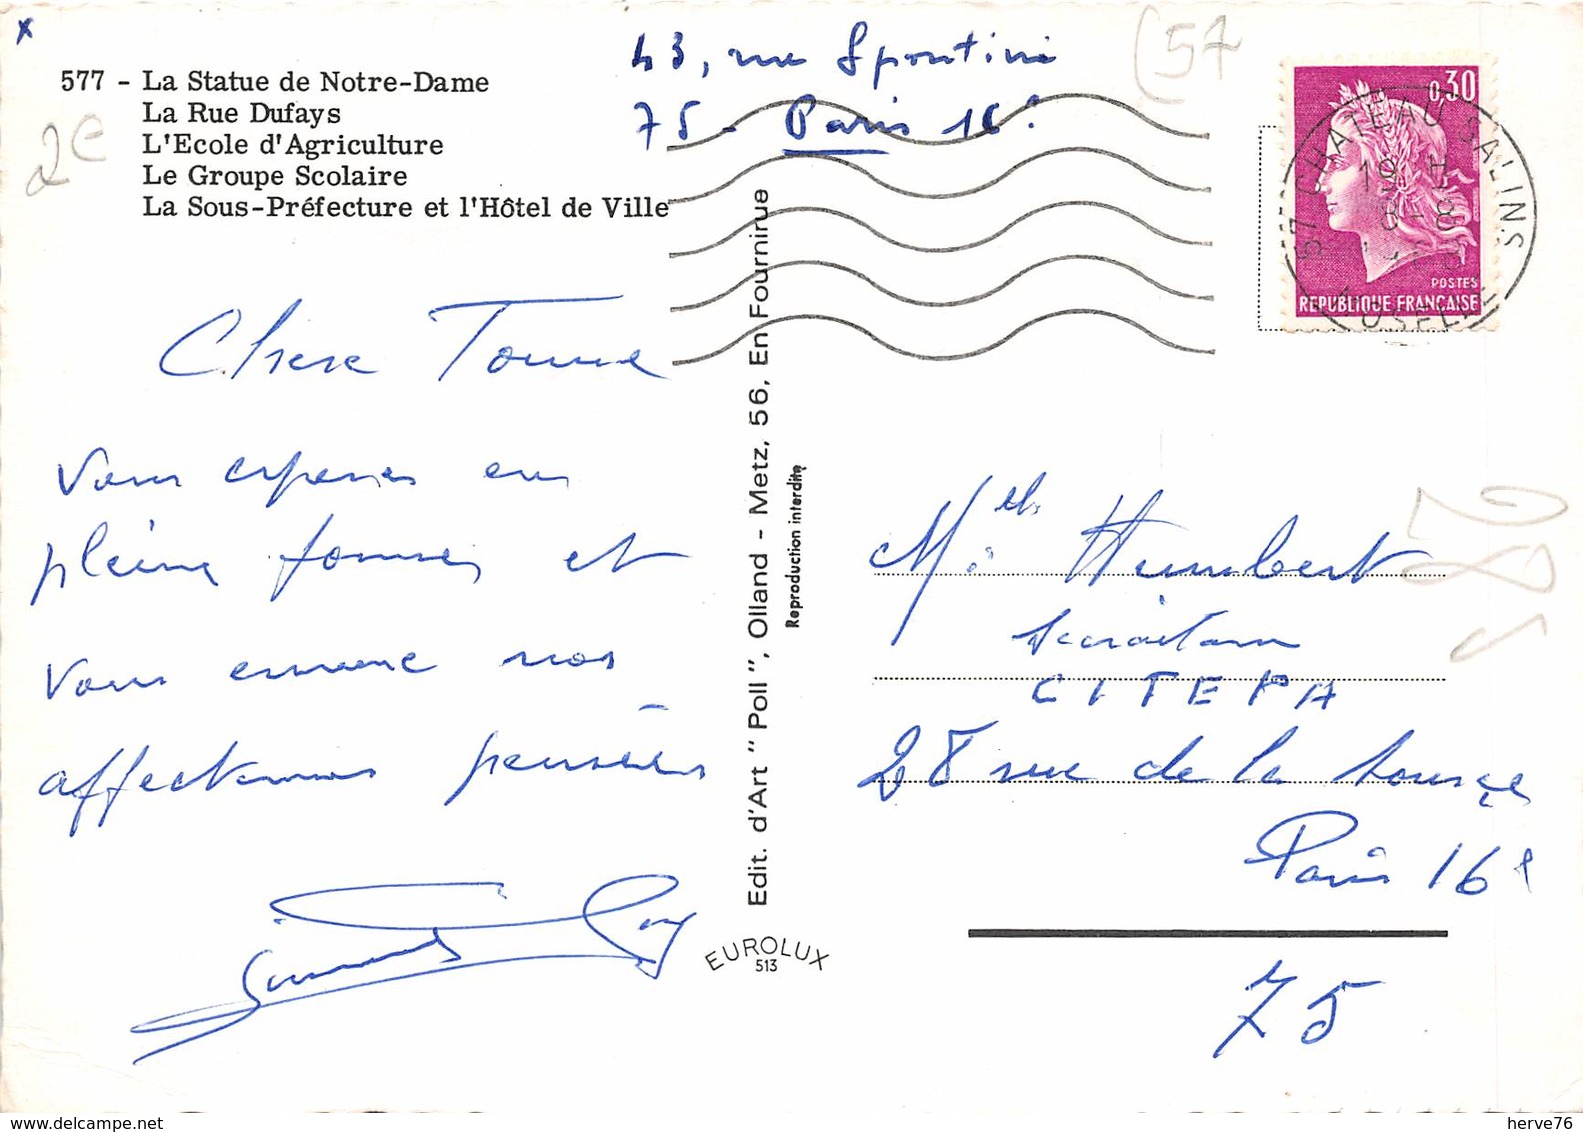 x
43, rue Spontini
75 - Paris 16e
(57
577 - La Statue de Notre-Dame
La Rue Dufays
L'Ecole d'Agriculture
Le Groupe Scolaire
La Sous-Préfecture et l'Hôtel de Ville
2e
0,30
POSTES
REPUBLIQUE FRANÇAISE
57 CHATEAU-SALINS
MOSELLE
Chere
vous esperes en
pleine forme, et
vous envoie nos
affectueuses pensées
Edit. d'Art "Poll", Olland - Metz, 56, En Fournirue
Reproduction interdite
EUROLUX
513
Melle Humbert
Secrétaire
CITEPA
28 rue de la Source
Paris 16e
75
herve76